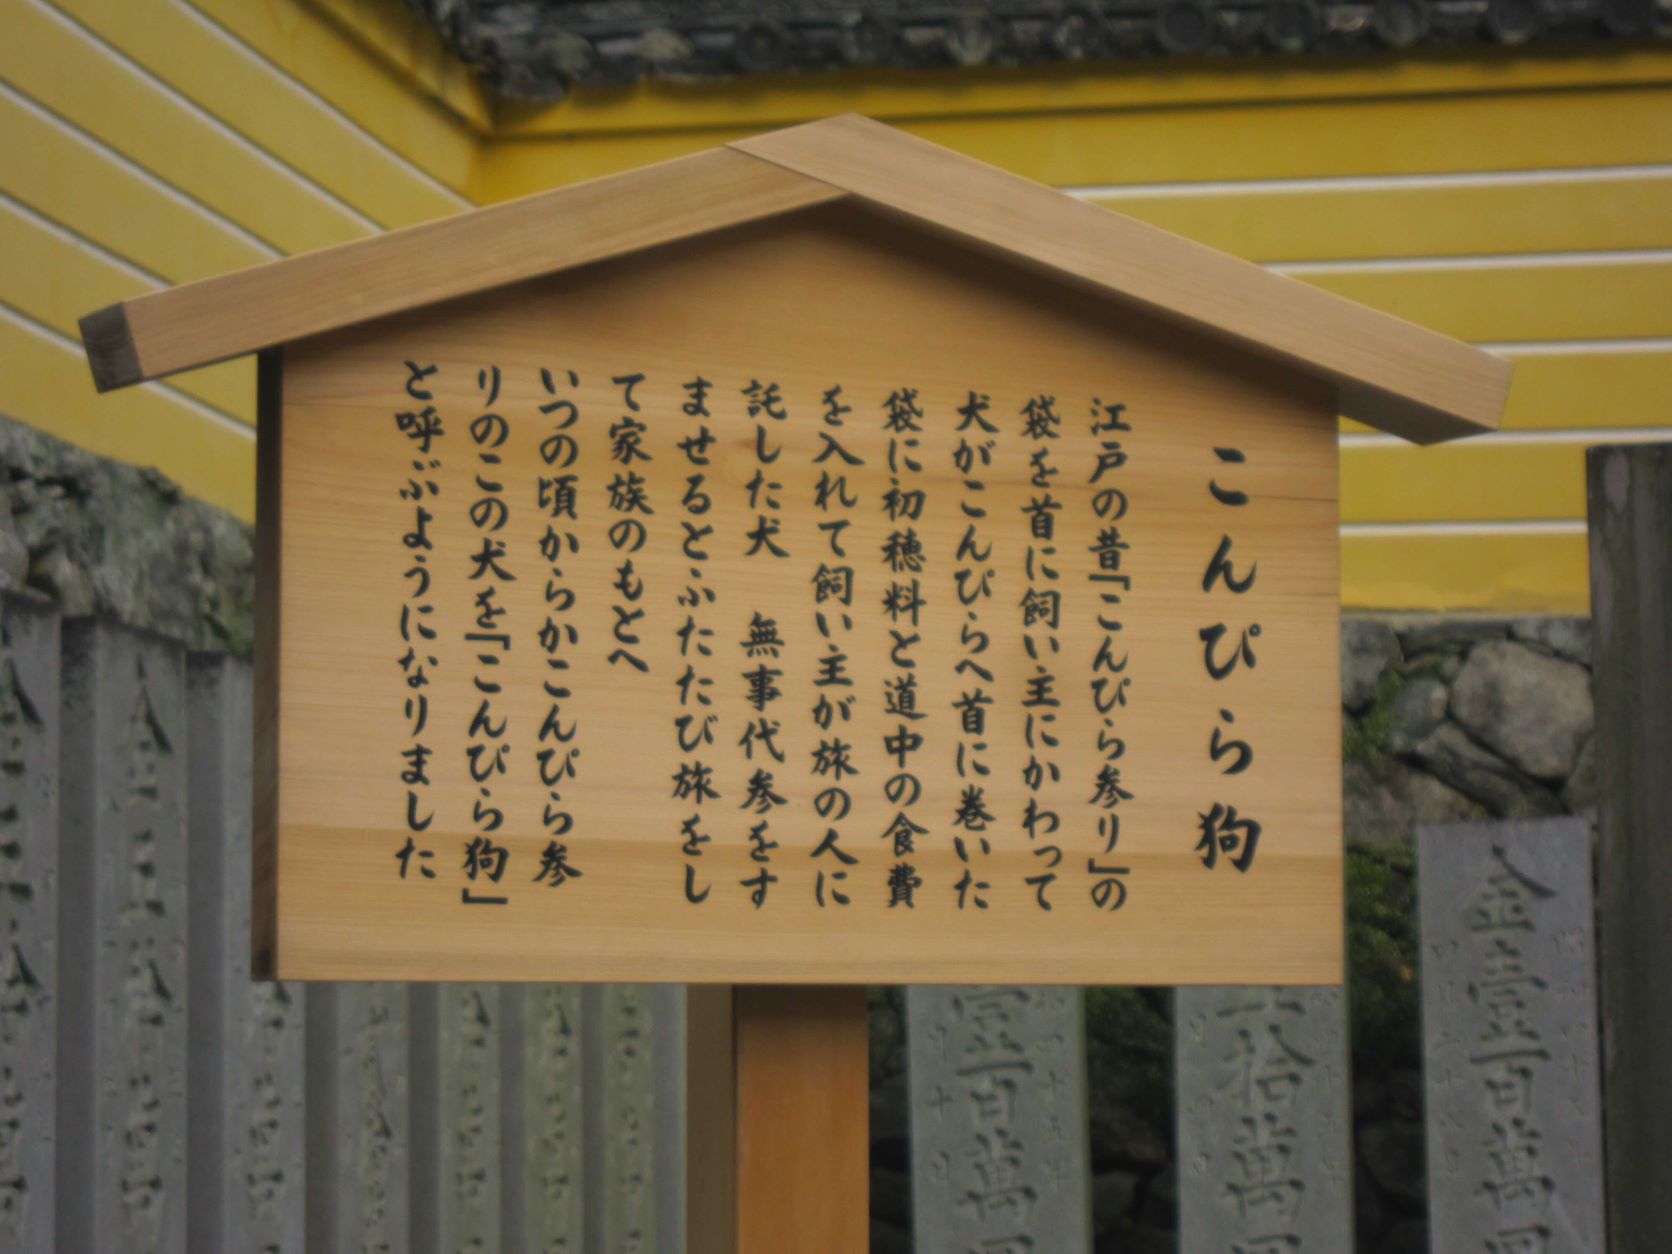 こんぴら狗
江戸の昔「こんぴら参り」の
袋を首に飼い主にかわって
犬がこんぴらへ首に巻いた
袋に初穂料と道中の食費
を入れて飼い主が旅の人に
託した犬　無事代参をす
ませるとふたたび旅をし
て家族のもとへ
いつの頃からかこんぴら参
りのこの犬を「こんぴら狗」
と呼ぶようになりました
金壹百萬
拾萬
壹百萬